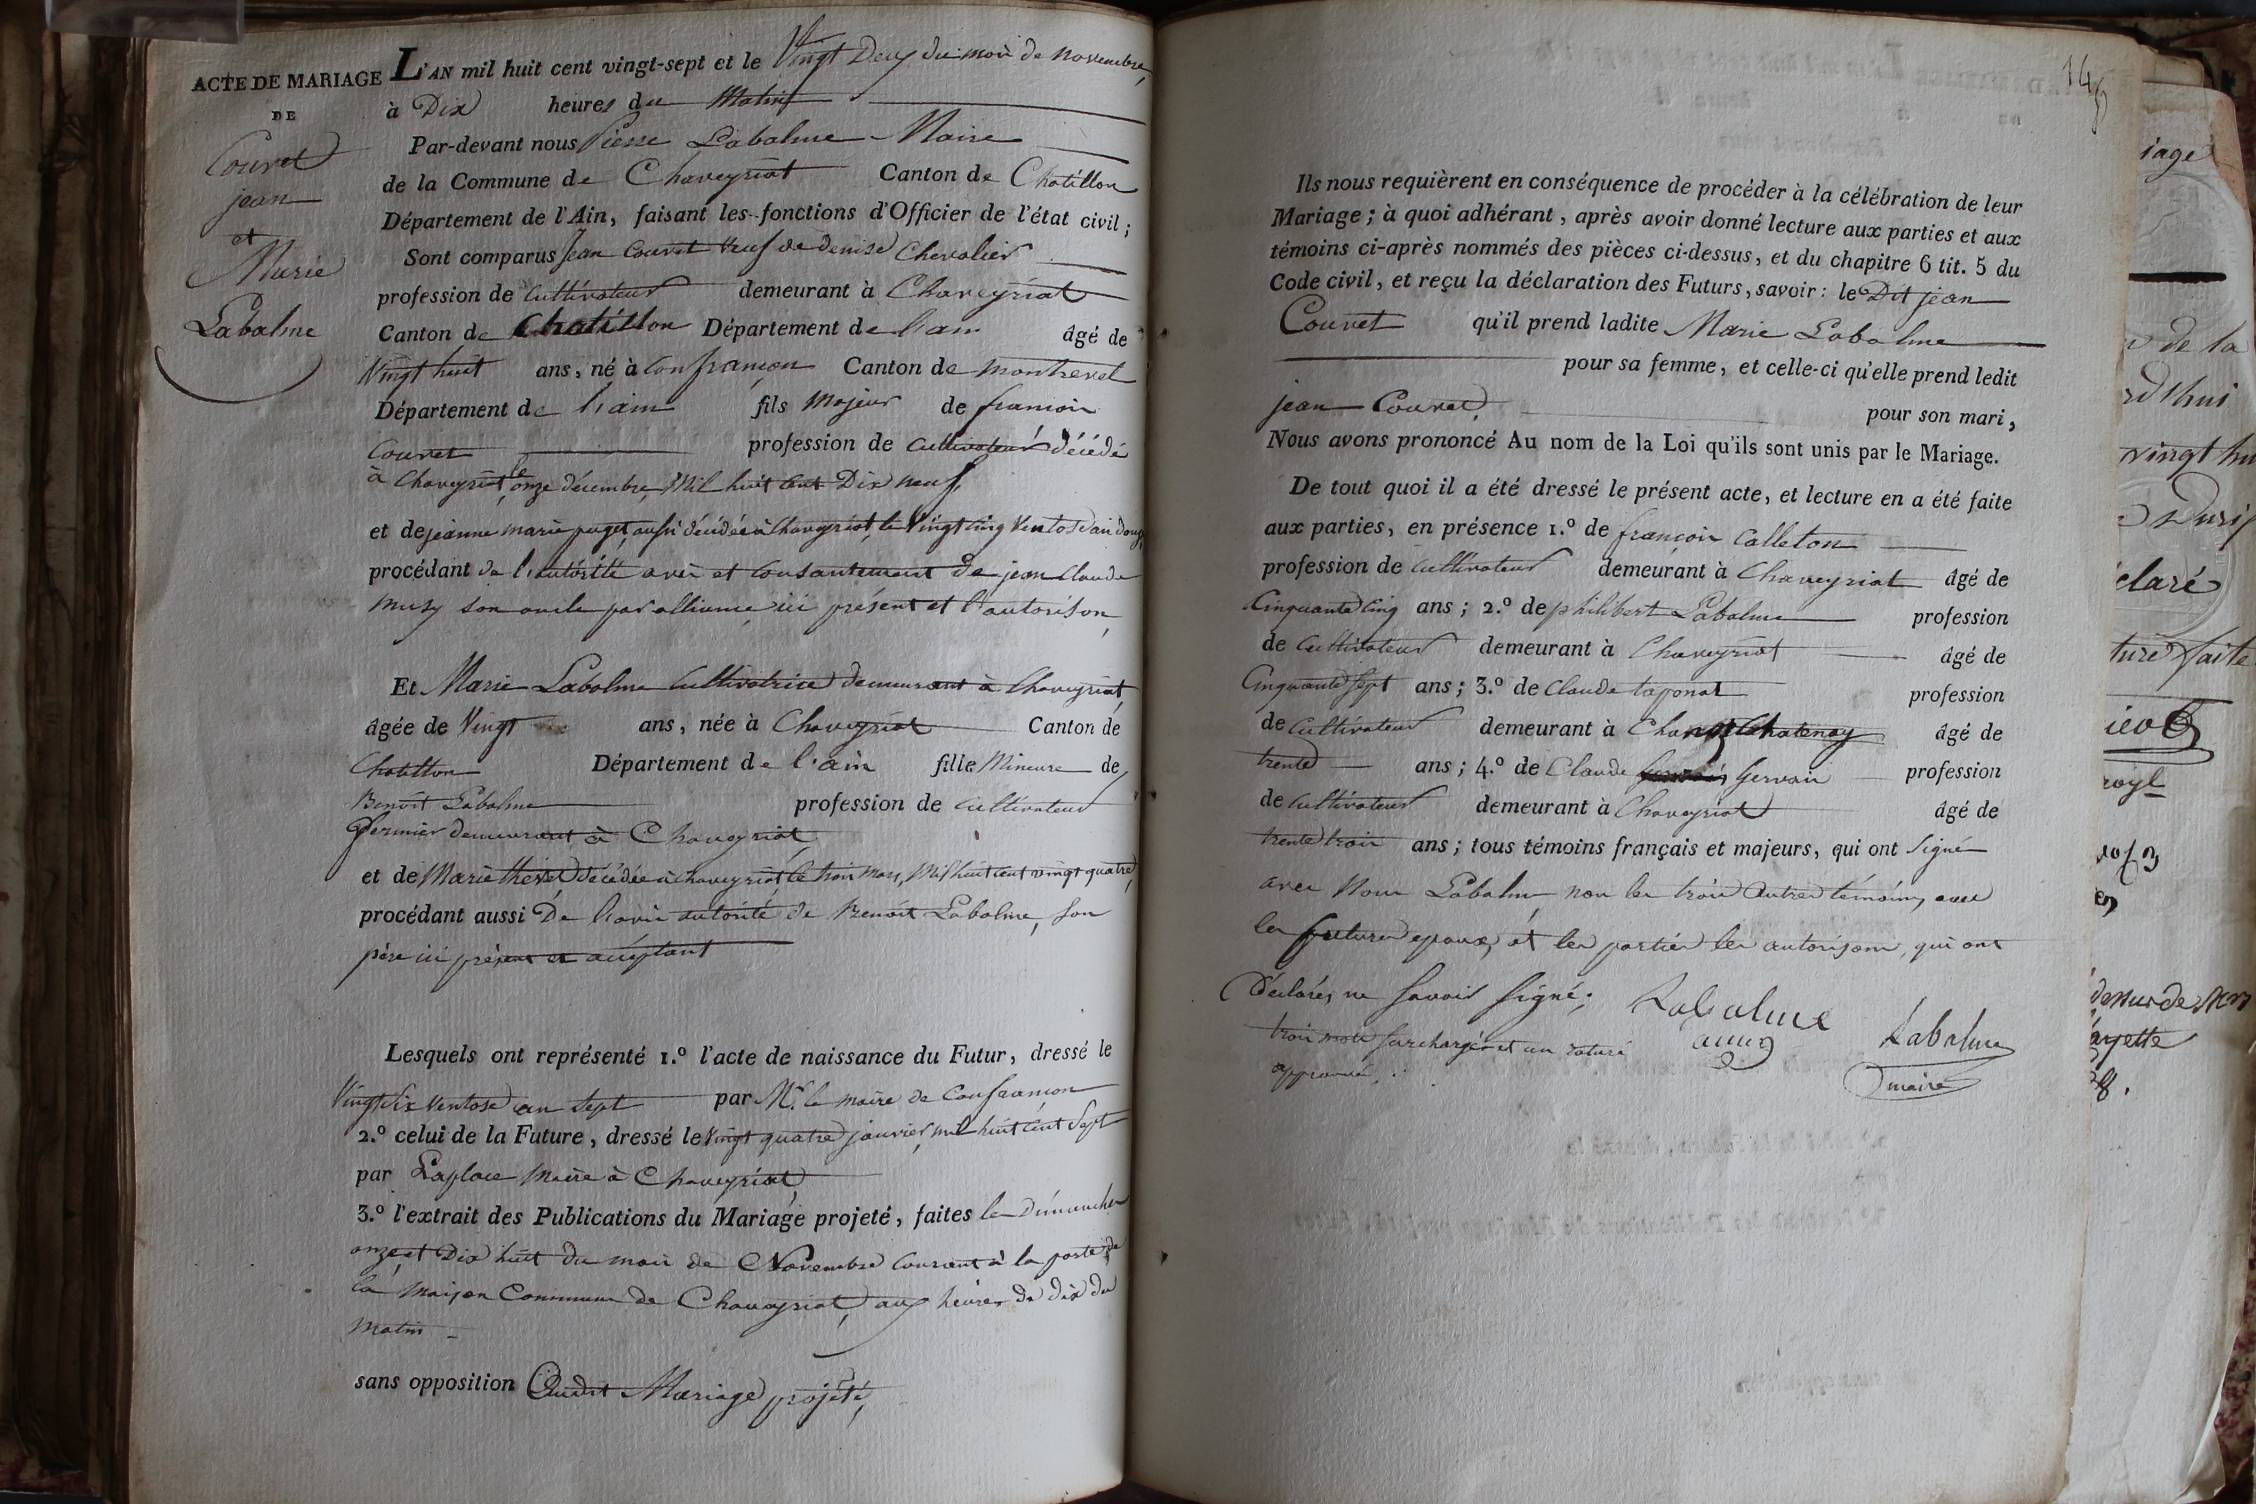 ACTE DE MARIAGE
DE
Couvet
jean
et
Marie
Labalme
L'AN mil huit cent vingt-sept et le Vingt Deux du mois de Novembre,
à Dix heures du Matin
Par-devant nous Pierre Labalme Maire
de la Commune de Chaveyriat Canton de Chatillon
Département de l'Ain, faisant les fonctions d'Officier de l'état civil;
Sont comparus Jean Couvet veuf de denise Chevalier
profession de Cultivateur demeurant à Chaveyriat
Canton de Chatillon Département de l'ain âgé de
Vingt huit ans, né à Confrançon Canton de montrevel
Département de l'ain fils Majeur de françois
Couvet profession de Cultivateur décédé
à Chaveyriat le onze décembre Mil huit cent Dix neuf,
et de jeanne marie puget, aussi décédée à Chaveyriat, le Vingt cinq Ventose an douze,
procédant de l'autorité avis et consantement de jean Claude
muzy son oncle par alliance, ici présent et l'autorison,
Et Marie Labalme Cultivatrice demeurant à Chaveyriat,
âgée de Vingt ans, née à Chaveyriat Canton de
Chatillon Département de l'ain fille Mineure de
Benoit Labalme profession de Cultivateur
fermier demeurant à Chaveyriat
et de Marie decédée à chaveyriat le trois Mars, Mil huit cent vingt quatre,
procédant aussi De l'avis autorité de Benoit Labalme, son
père ici présent et acceptant
Lesquels ont représenté 1.º l'acte de naissance du Futur, dressé le
Vingt Six Ventose an Sept par Mr. le maire de Confrançon
2.º celui de la Future, dressé le Vingt quatre janvier, mil huit cent Sept
par Laplace Maire à Chaveyriat
3.º l'extrait des Publications du Mariage projeté, faites les Dimanches
onze et Dix huit du mois de Novembre Courant à la porte de
la Maison Commune de Chaveyriat, aux heures de dix du
Matin
sans opposition Audit Mariage projeté,
145
Ils nous requièrent en conséquence de procéder à la célébration de leur
Mariage; à quoi adhérant, après avoir donné lecture aux parties et aux
témoins ci-après nommés des pièces ci-dessus, et du chapitre 6 tit. 5 du
Code civil, et reçu la déclaration des Futurs, savoir: le Dit jean
Couvet qu'il prend ladite Marie Labalme
pour sa femme, et celle-ci qu'elle prend ledit
jean Couvet pour son mari,
Nous avons prononcé Au nom de la Loi qu'ils sont unis par le Mariage.
De tout quoi il a été dressé le présent acte, et lecture en a été faite
aux parties, en présence 1.º de françois Calleton
profession de Cultivateur demeurant à Chaveyriat âgé de
Cinquante Cinq ans; 2.º de philibert Labalme profession
de Cultivateur demeurant à Chaveyriat âgé de
Cinquante Sept ans; 3.º de Claude taponat profession
de Cultivateur demeurant à Chatenay âgé de
trente ans; 4.º de Claude Gervais profession
de Cultivateur demeurant à Chaveyriat âgé de
trente trois ans; tous témoins français et majeurs, qui ont Signé
avec Nous Labalme non les trois Autres témoins, avec
les futures epoux, et les parties les autorisons, qui ont
Déclarés ne Savoir Signé;
Labalme
Labalme
maire
trois mots Surchargés et un raturé
approuvé.
iage
de la
rd'hui
vingt hu
claré
ture faite